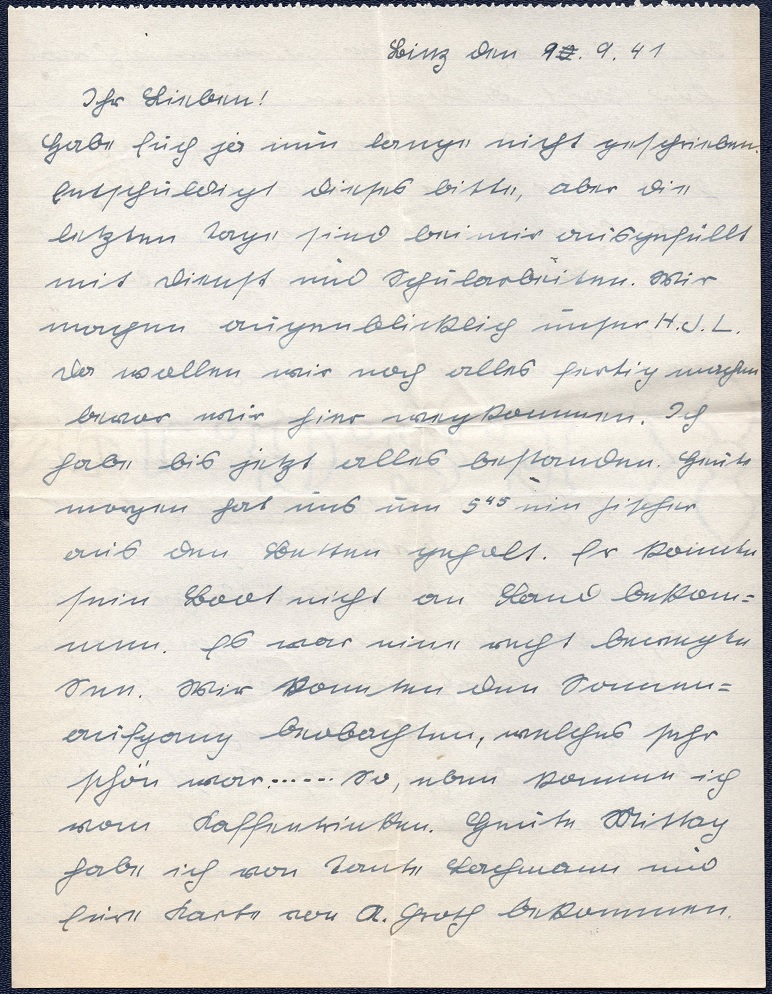 Binz den 9. 9. 41
Ihr Lieben!
Habe Euch ja nun lange nicht geschrieben.
Entschuldigt dieses bitte, aber die
letzten Tage sind bei mir ausgefüllt
mit Dienst und Schularbeiten. Wir
machen augenblicklich unser H.J.L.
Da wollen wir noch alles fertig machen
bevor wir hier wegkommen. Ich
habe bis jetzt alles bestanden. Heute
morgen hat uns um 5⁴⁵ ein Fischer
aus den Betten geholt. Er konnte
sein Boot nicht an Land bekom=
men. Es war eine recht bewegte
See. Wir konnten den Sonnen=
aufgang beobachten, welches sehr
schön war...... So, eben komme ich
vom Kaffeetrinken. Heute Mittag
habe ich von Tante und
Eure Karte von A. Groth bekommen.